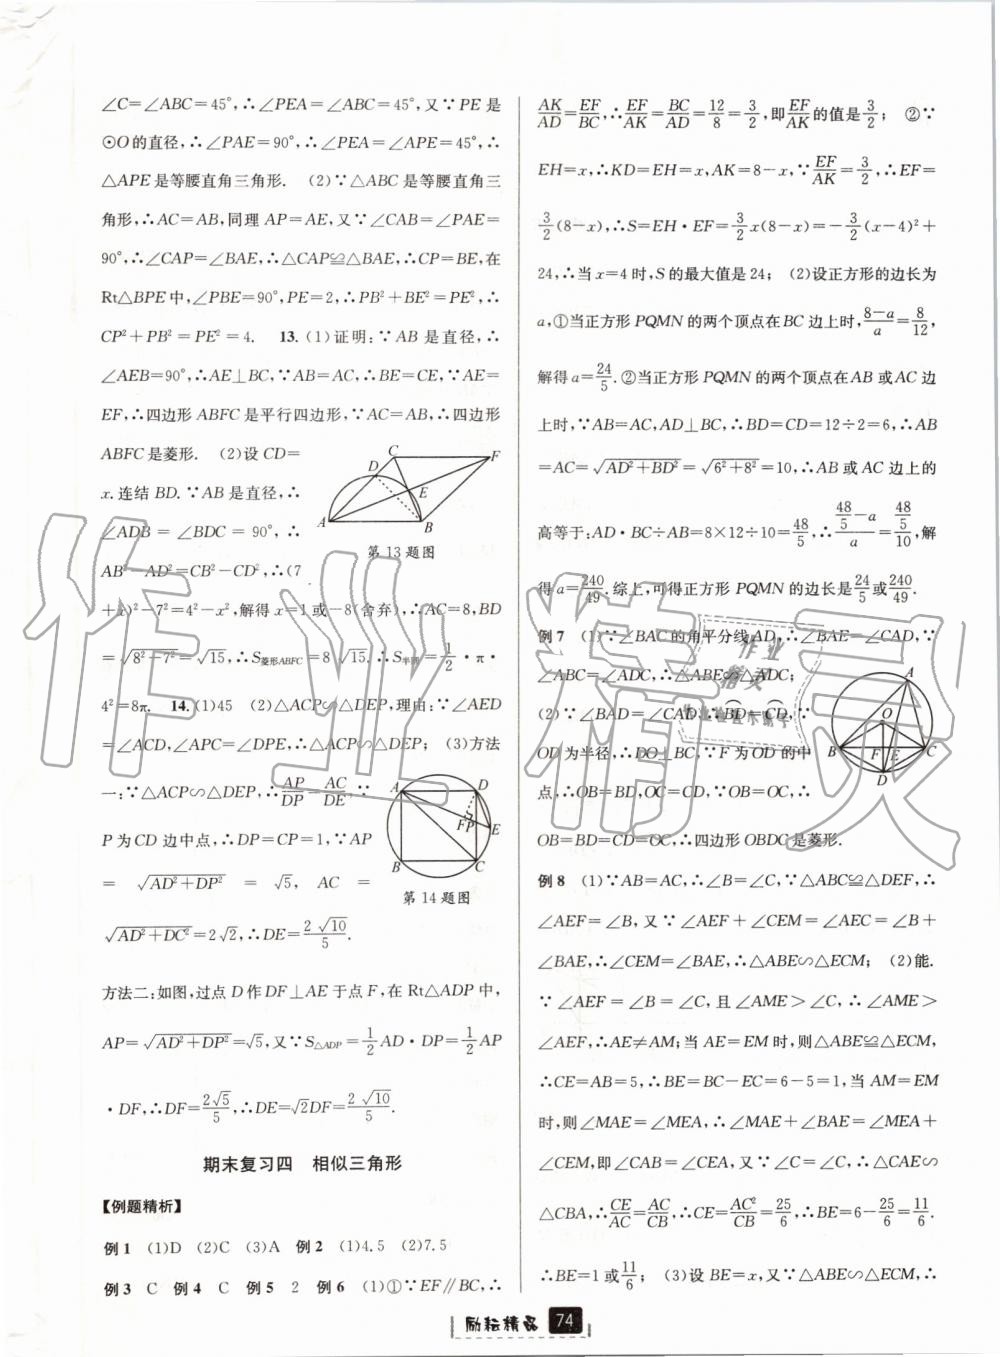 ∠C=∠ABC=45°,∴∠PEA=∠ABC=45°,又∵PE是
⊙O的直径,∴∠PAE=90°,∴∠PEA=∠APE=45°,∴
△APE是等腰直角三角形. (2)∵△ABC是等腰直角三
角形,∴AC=AB,同理AP=AE,又∵∠CAB=∠PAE=
90°,∴∠CAP=∠BAE,∴△CAP≌△BAE,∴CP=BE,在
Rt△BPE中,∠PBE=90°,PE=2,∴PB²+BE²=PE²,∴
CP²+PB²=PE²=4. 13.(1)证明:∵AB是直径,∴
∠AEB=90°,∴AE⊥BC,∵AB=AC,∴BE=CE,∵AE=
EF,∴四边形ABFC是平行四边形,∵AC=AB,∴四边形
ABFC是菱形. (2)设CD=
x.连结BD.∵AB是直径,∴
∠ADB=∠BDC=90°,∴
AB²-AD²=CB²-CD²,∴(7
+x)²-7²=4²-x²,解得x=1或-8(舍弃),∴AC=8,BD
=√(8²-7²)=√15,∴S菱形ABFC=8√15.∴S半圆=1/2·π·
4²=8π. 14.(1)45 (2)△ACP∽△DEP,理由:∵∠AED
=∠ACD,∠APC=∠DPE,∴△ACP∽△DEP; (3)方法
一:∵△ACP∽△DEP,∴AP/DP=AC/DE,∵
P为CD边中点,∴DP=CP=1,∵AP
=√(AD²+DP²)=√5,AC=
√(AD²+DC²)=2√2,∴DE=2√10/5.
方法二:如图,过点D作DF⊥AE于点F,在Rt△ADP中,
AP=√(AD²+DP²)=√5,又∵S△ADP=1/2AD·DP=1/2AP
·DF,∴DF=2√5/5,∴DE=√2DF=2√10/5.
C
D
F
E
A
B
第13题图
A
D
E
F
P
B
C
第14题图
期末复习四 相似三角形
【例题精析】
例1 (1)D (2)C (3)A 例2 (1)4.5 (2)7.5
例3 C 例4 C 例5 2 例6 (1)①∵EF∥BC,∴
AK/AD=EF/BC,∴EF/AK=BC/AD=12/8=3/2,即EF/AK的值是3/2; ②∵
EH=x,∴KD=EH=x,AK=8-x,∵EF/AK=3/2,∴EF=
3/2(8-x),∴S=EH·EF=3/2x(8-x)=-3/2(x-4)²+
24,∴当x=4时,S的最大值是24; (2)设正方形的边长为
a,①当正方形PQMN的两个顶点在BC边上时,(8-a)/a=8/12,
解得a=24/5.②当正方形PQMN的两个顶点在AB或AC边
上时,∵AB=AC,AD⊥BC,∴BD=CD=12÷2=6,∴AB
=AC=√(AD²+BD²)=√(6²+8²)=10,∴AB或AC边上的
高等于:AD·BC÷AB=8×12÷10=48/5,∴(48/5-a)/a=(48/5)/10,解
得a=240/49.综上,可得正方形PQMN的边长是24/5或240/49.
例7 (1)∵∠BAC的角平分线AD,∴∠BAE=∠CAD,∵
∠ABC=∠ADC,∴△ABE∽△ADC;
(2)∵∠BAD=∠CAD,∴BD=CD,∵
OD为半径,∴DO⊥BC,∵F为OD的中
点,∴OB=BD,OC=CD,∵OB=OC,∴
OB=BD=CD=OC,∴四边形OBDC是菱形.
A
O
B
F
E
C
D
例8 (1)∵AB=AC,∴∠B=∠C,∵△ABC≌△DEF,∴
∠AEF=∠B,又∵∠AEF+∠CEM=∠AEC=∠B+
∠BAE,∴∠CEM=∠BAE,∴△ABE∽△ECM; (2)能.
∵∠AEF=∠B=∠C,且∠AME>∠C,∴∠AME>
∠AEF,∴AE≠AM;当AE=EM时,则△ABE≌△ECM,
∴CE=AB=5,∴BE=BC-EC=6-5=1,当AM=EM
时,则∠MAE=∠MEA,∴∠MAE+∠BAE=∠MEA+
∠CEM,即∠CAB=∠CEA,又∵∠C=∠C,∴△CAE∽
△CBA,∴CE/AC=AC/CB,∴CE=AC²/CB=25/6,∴BE=6-25/6=11/6.
∴BE=1或11/6; (3)设BE=x,又∵△ABE∽△ECM,∴
励耘精品 74
作业精灵
作业
精灵